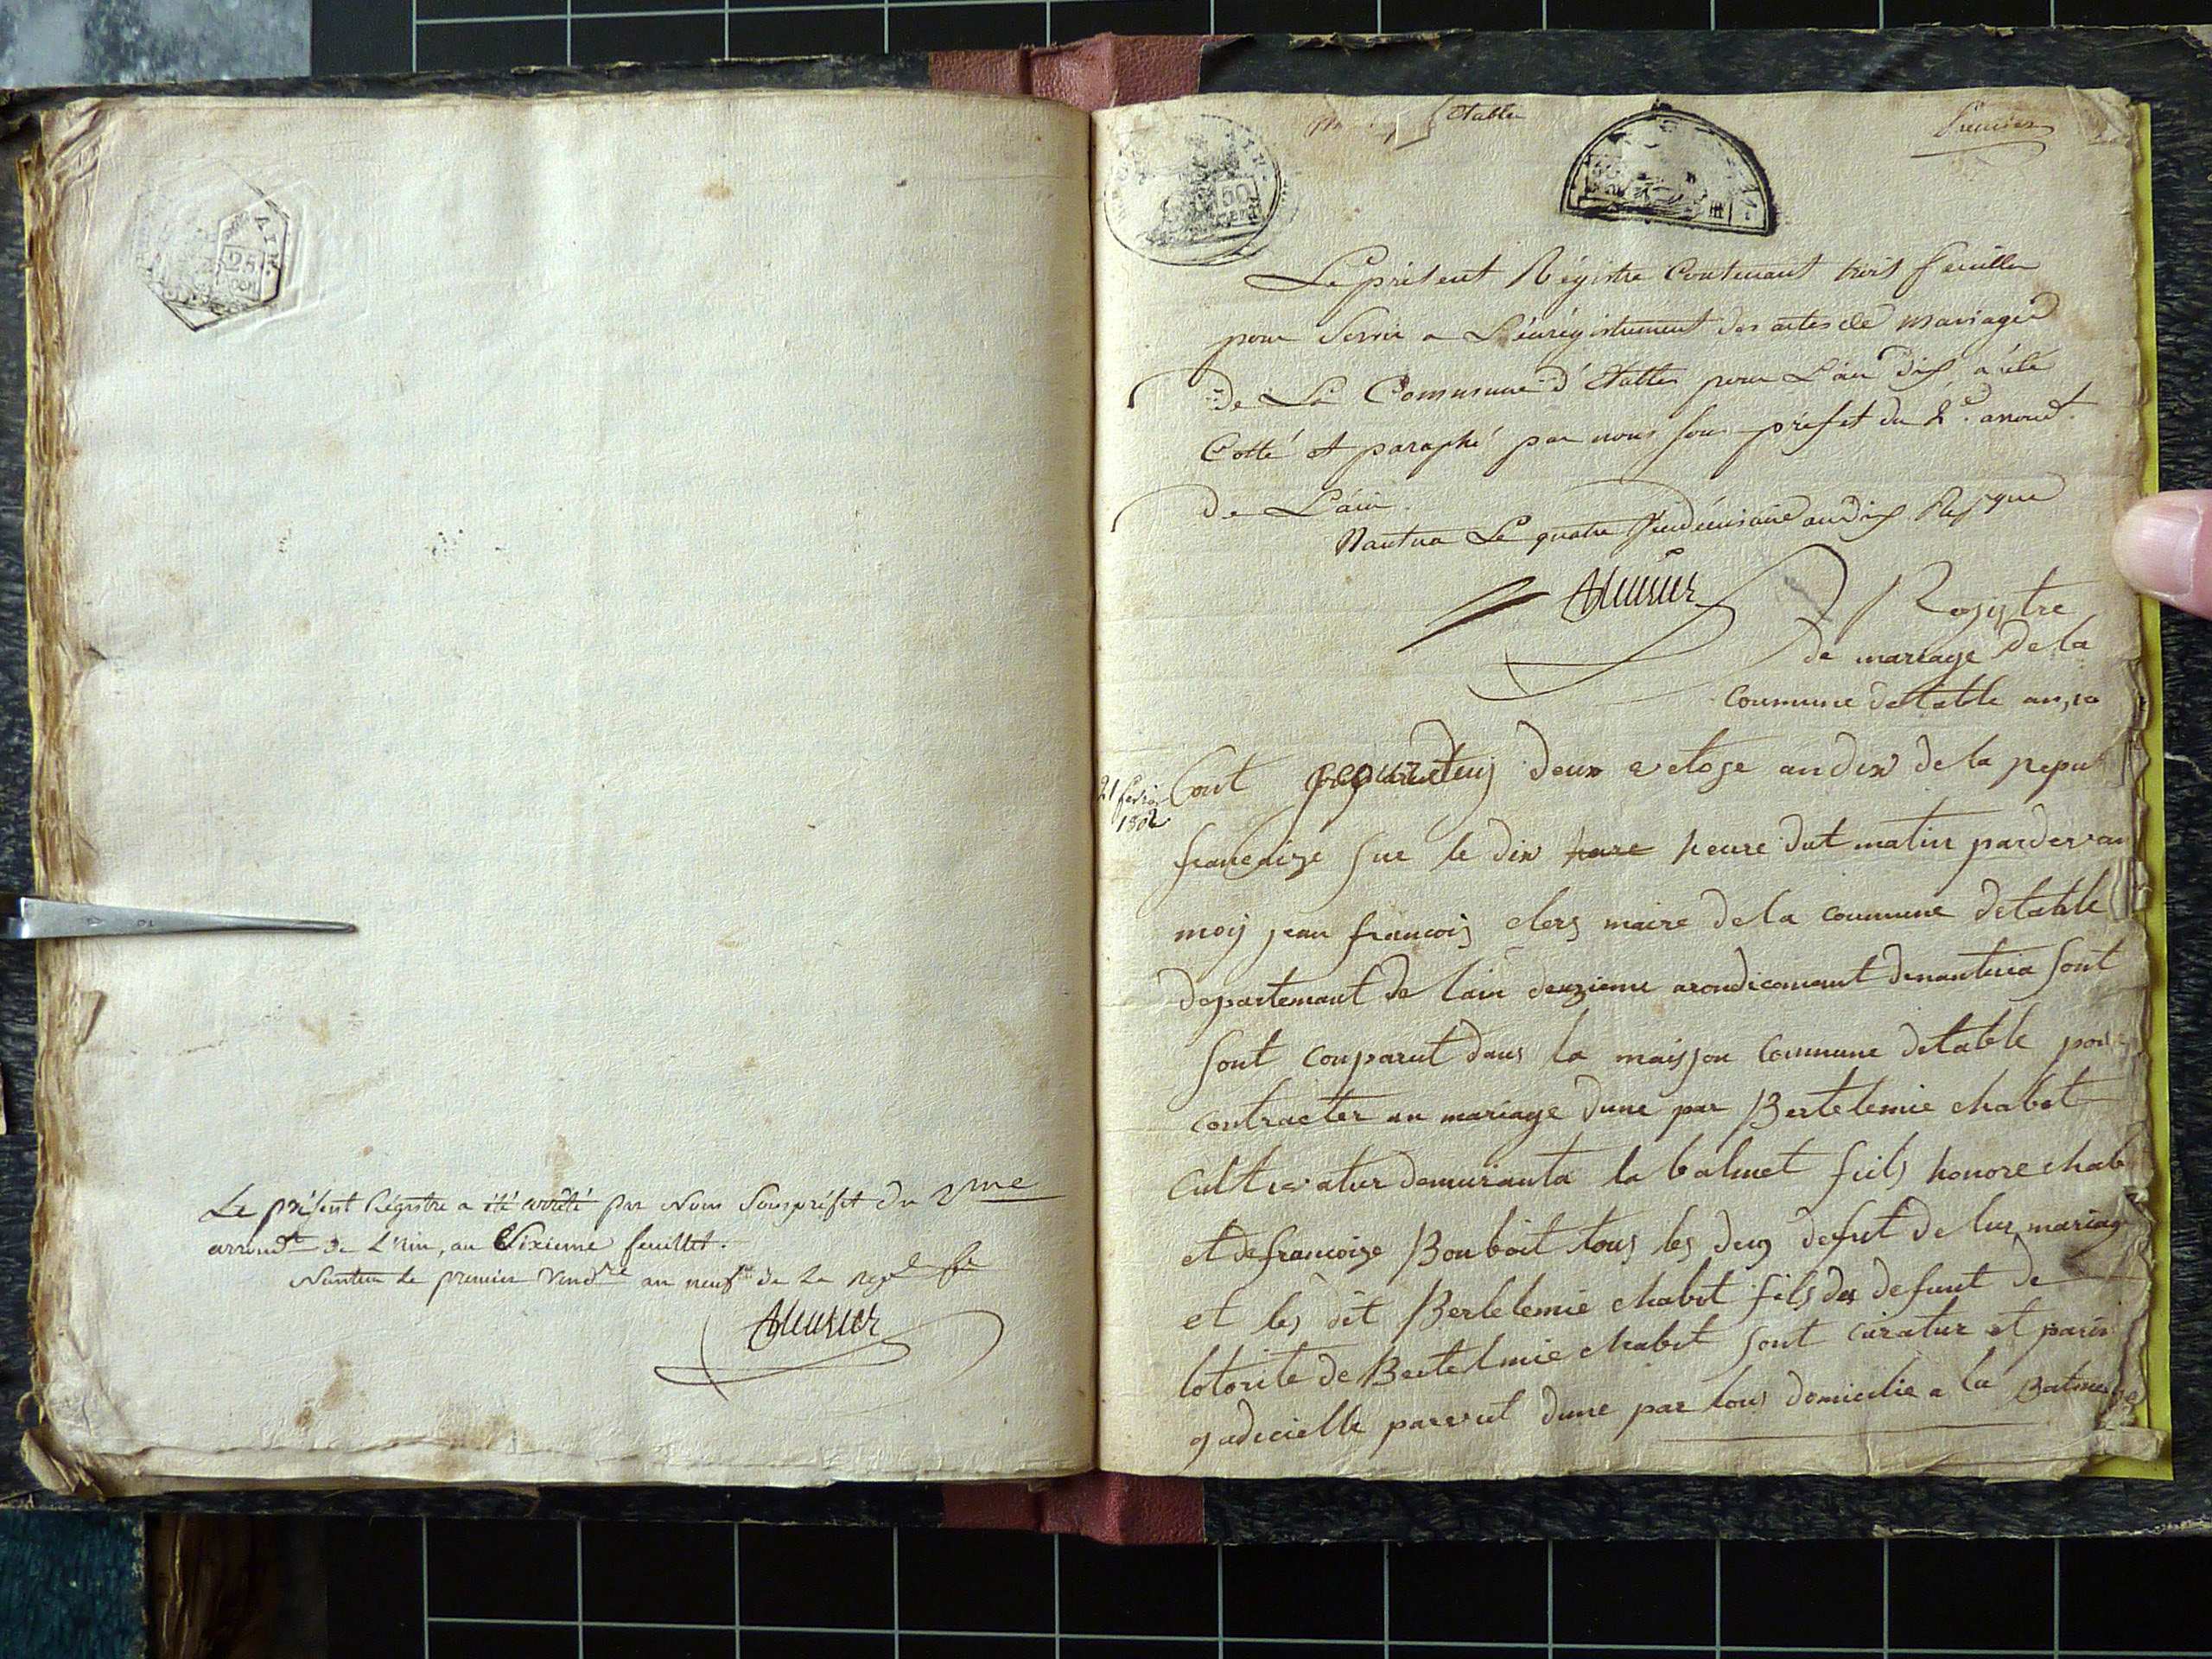 25
cen
Le présent Régistre a été arrêté par Nous Souspréfet du 2me
arrondt de L'Ain, au Sixieme feuillet.
Nantua Le premier Vendre an neuf de La repe fr
Etable
Premier
50
Le présent Régistre Contenant trois feuilles
pour Servir a L'énrégistrement des actes de mariages
De La Commune d'Etables pour L'an Dix a été
Cotté et paraphé par nous sous-préfet du 2e. arrondt.
De L'ain.
Nantua Le quatre Vendémiaire an Dix
Registre
de mariage De la
Coumune detable an 10
21 fevrier
1802
deux vetose an dix de la repu
francaize sur le dix heure dut matin pardevan
moy jean francois clerg maire de la coumune detable
departemant de lain deuzieme arondicemant denantua sont
sont conparut dans la maison Commune detable pour
contracter un mariage dune par Bertelemie chabot
Cultivatur demuranta la balmet fiils honore chab
et defrancoize Bonboit tous les deuy defut de lur mariage
et les dit Bertelemie chabot fils des defunt de
lotorite de Bertelmie chabot sont curatur et paren
dune par tous domicilie a la Balme